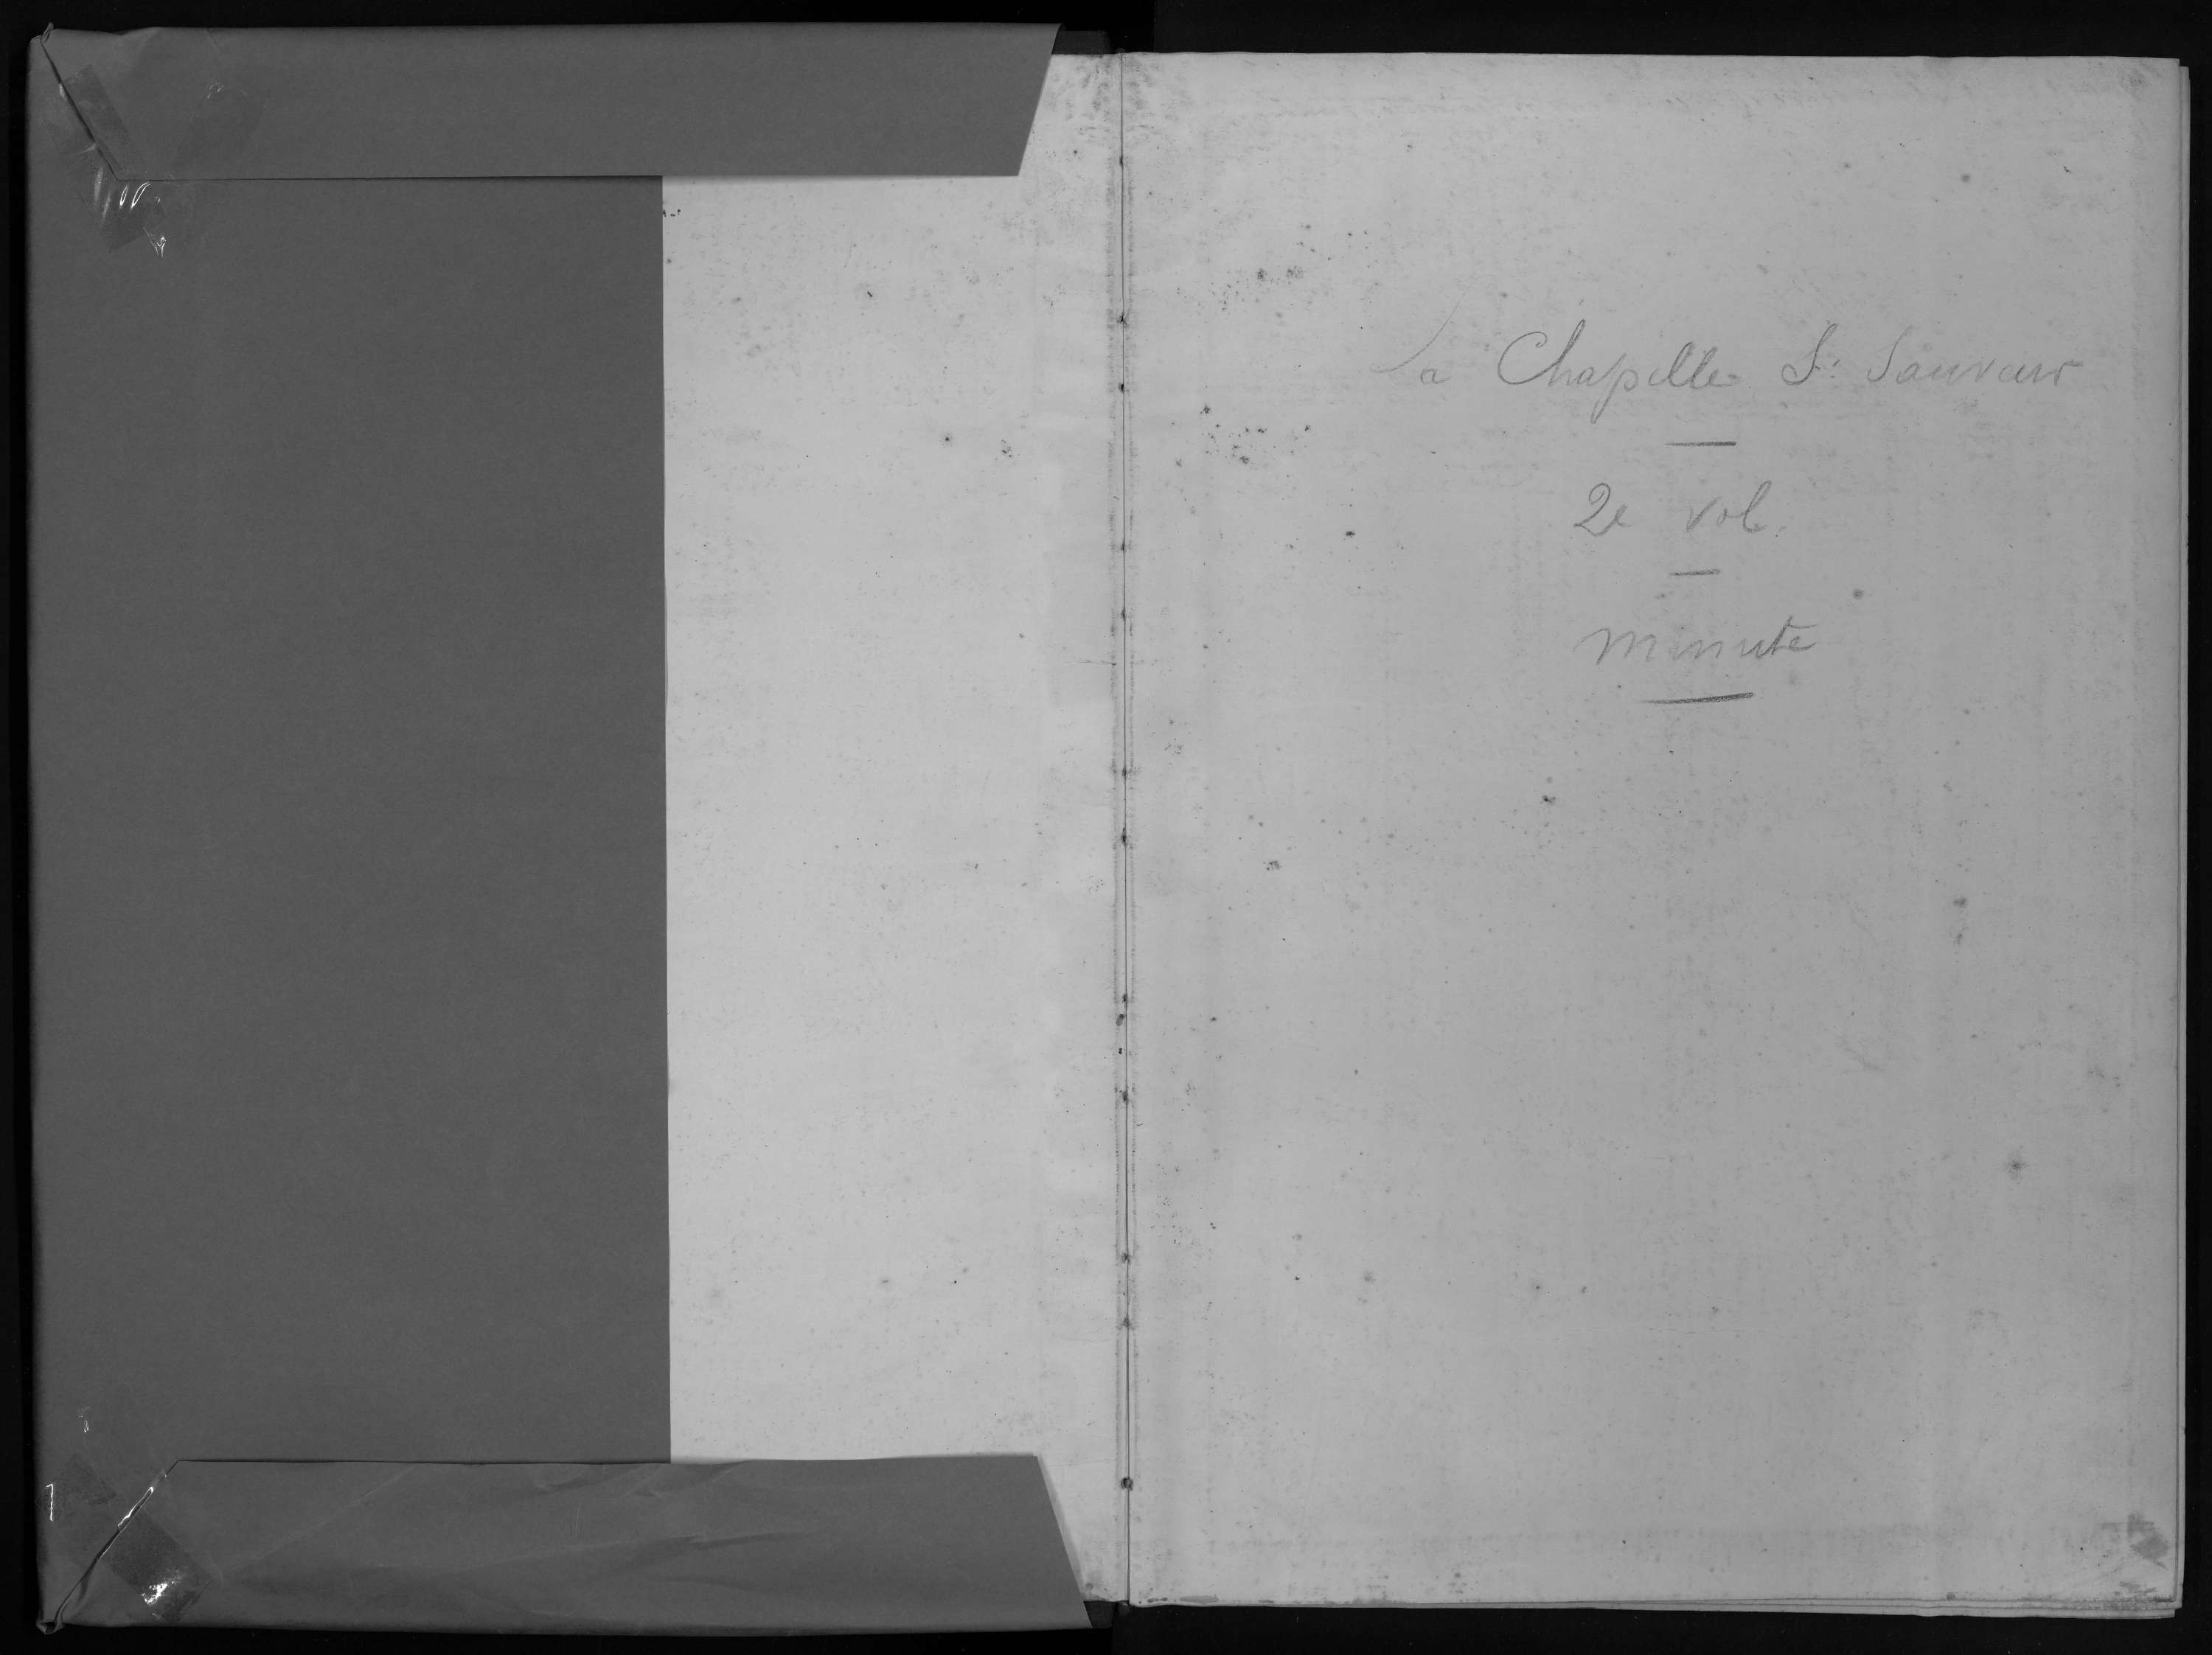 La Chapelle St Sauveur
2e vol.
minute